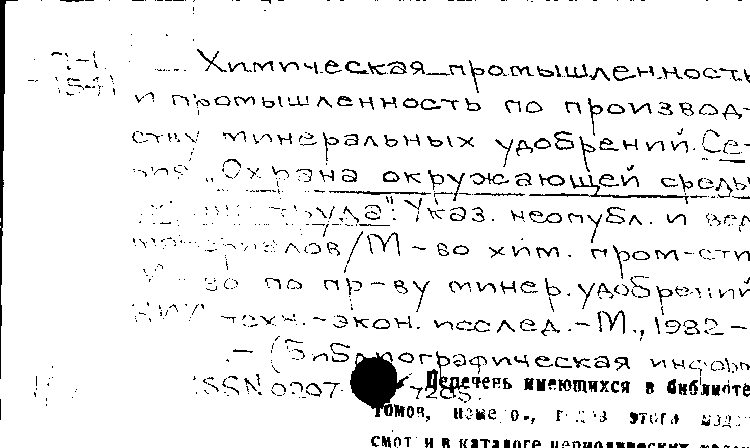 Химическая промышленность
и промышленность по производ-
ству минеральных удобрений. Се-
рия „Охрана окружающей среды
труда". Указ. неопубл. и вед.
материалов / М-во хим. пром-сти
М-во по пр-ву минер. удобрений
НИИ техн.-экон. исслед. - М., 1982 -
. - (Библиографическая информ
ISSN 0207-7205.
Перечень имеющихся в библиоте
томов, номеро., этого изд
смотри в каталоге периодических